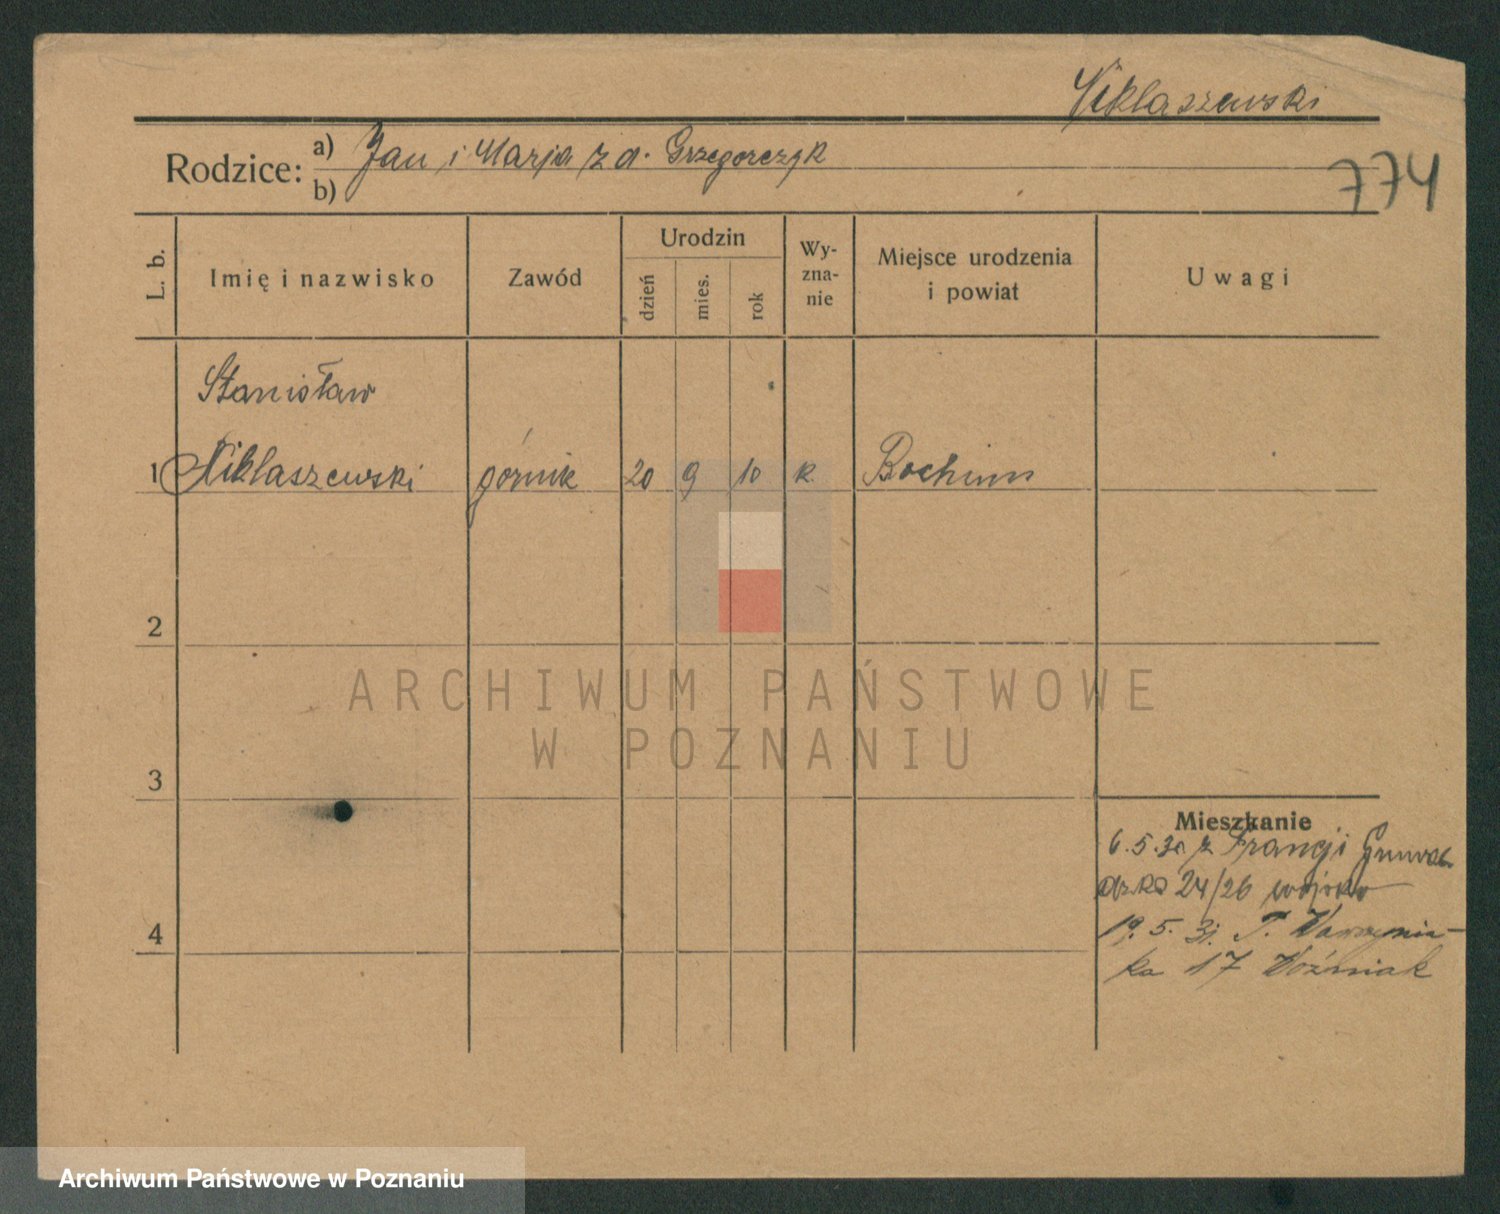 Niklaszewski
Rodzice:
a) Jan i Marja z d. Grzegorczyk
b)
774
L. b.
Imię i nazwisko
Zawód
Urodzin
dzień
mies.
rok
Wy-
zna-
nie
Miejsce urodzenia
i powiat
Uwagi
Stanisław
1 Niklaszewski górnik 20 9 10 k. Bochum
2
ARCHIWUM PAŃSTWOWE
W POZNANIU
3
Mieszkanie
6.5.30 z Francji Grunwal-
dzka 24/26 wojsko
4
19.5.31. P. Wawrzynia-
ka 17 Woźniak
Archiwum Państwowe w Poznaniu